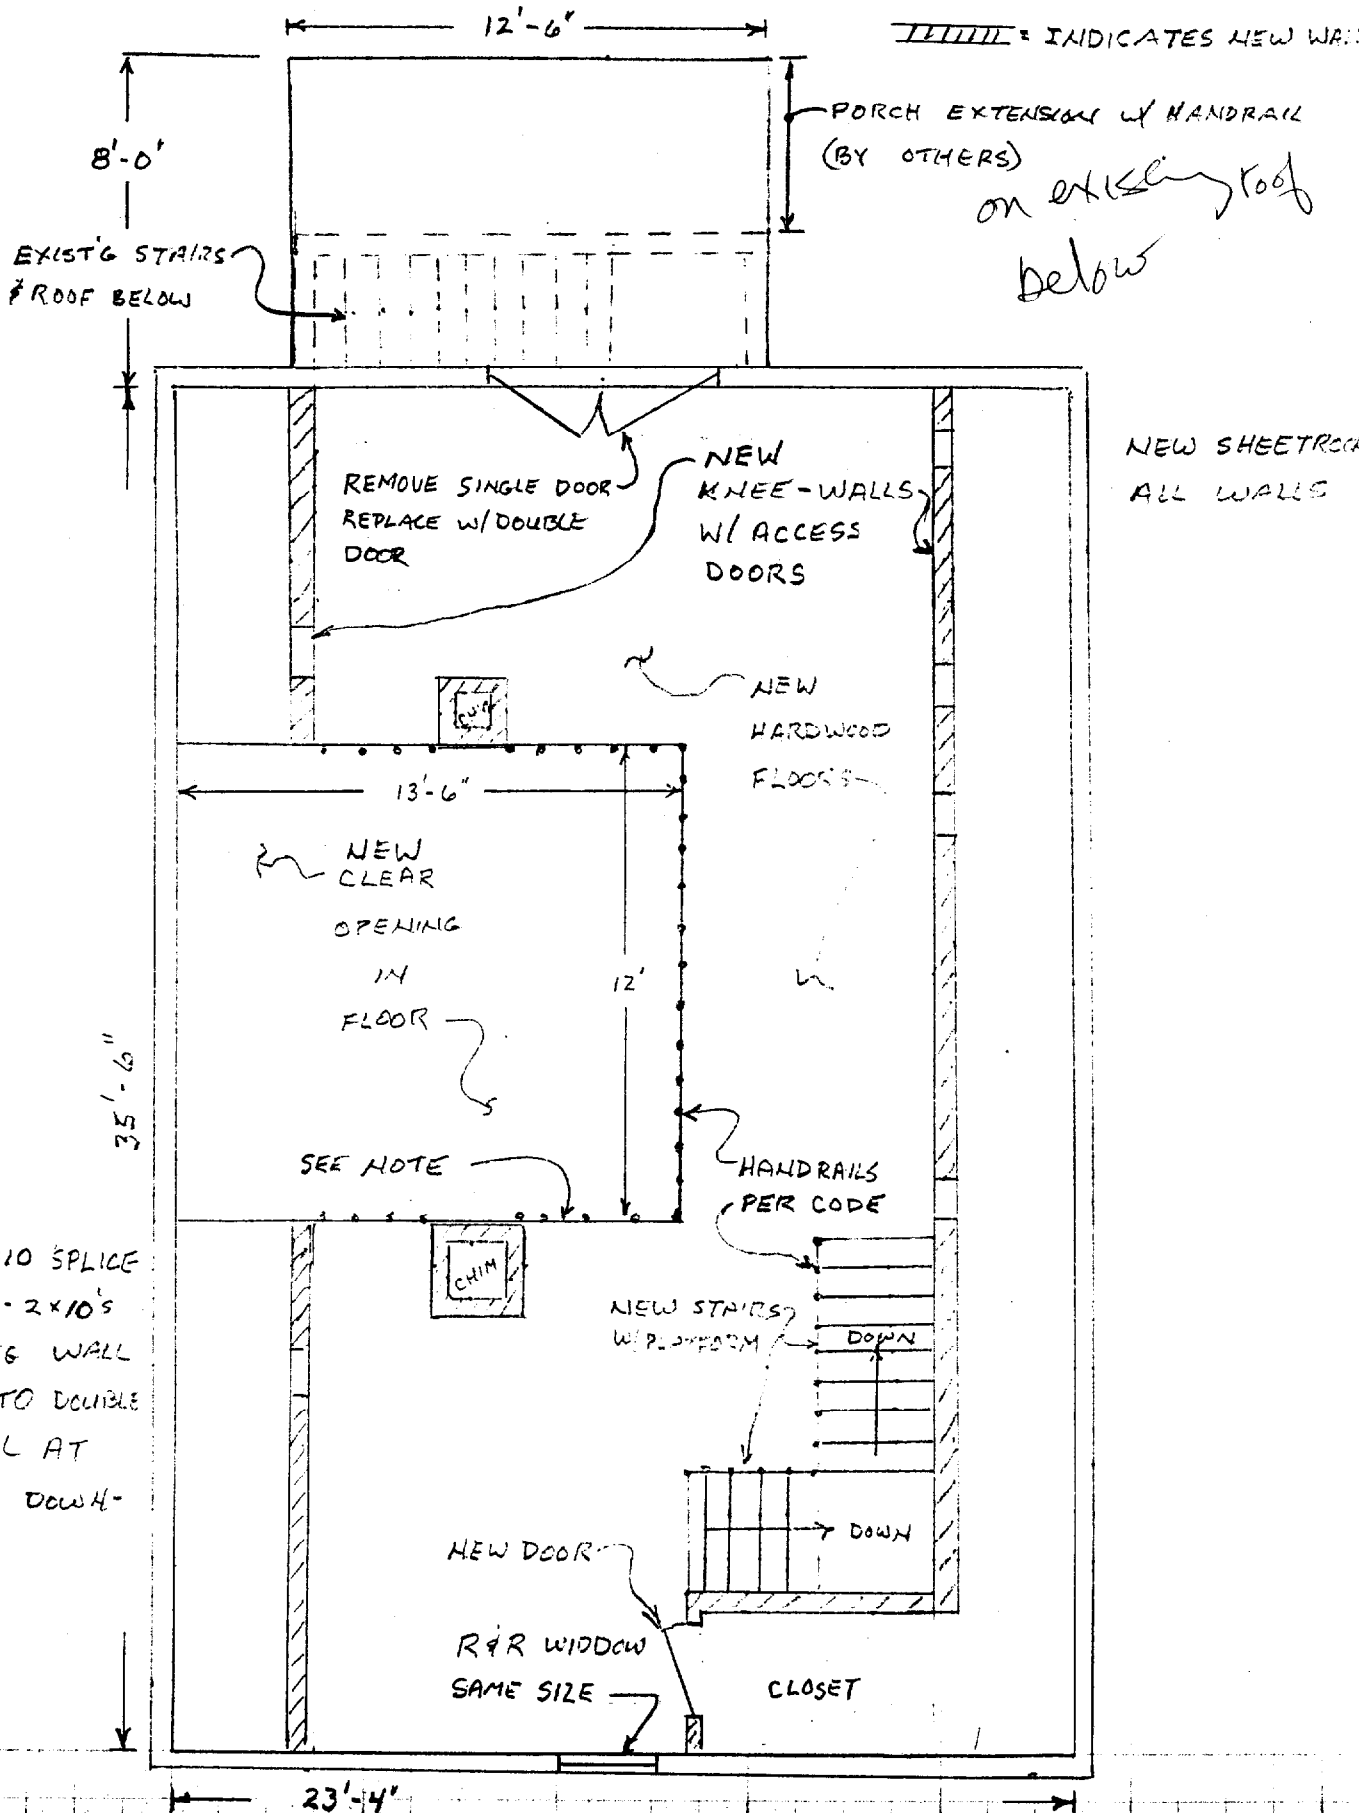 12'-6"
= INDICATES NEW WA
8'-0"
PORCH EXTENSION W/ HANDRAIL
(BY OTHERS)
on existing roof
below
EXIST'G STAIRS
& ROOF BELOW
NEW SHEETROCK
ALL WALLS
REMOVE SINGLE DOOR
REPLACE W/DOUBLE
DOOR
NEW
KNEE-WALLS
W/ ACCESS
DOORS
NEW
HARDWOOD
FLOORS
13'-6"
NEW
CLEAR
OPENING
IN
FLOOR
12'
35'-6"
SEE NOTE
HANDRAILS
PER CODE
CHIM
10 SPLICE
- 2x10's
G WALL
TO DOUBLE
L AT
DOWN-
NEW STAIRS
W/PLATFORM
DOWN
DOWN
NEW DOOR
R&R WIDDOW
SAME SIZE
CLOSET
23'-4"